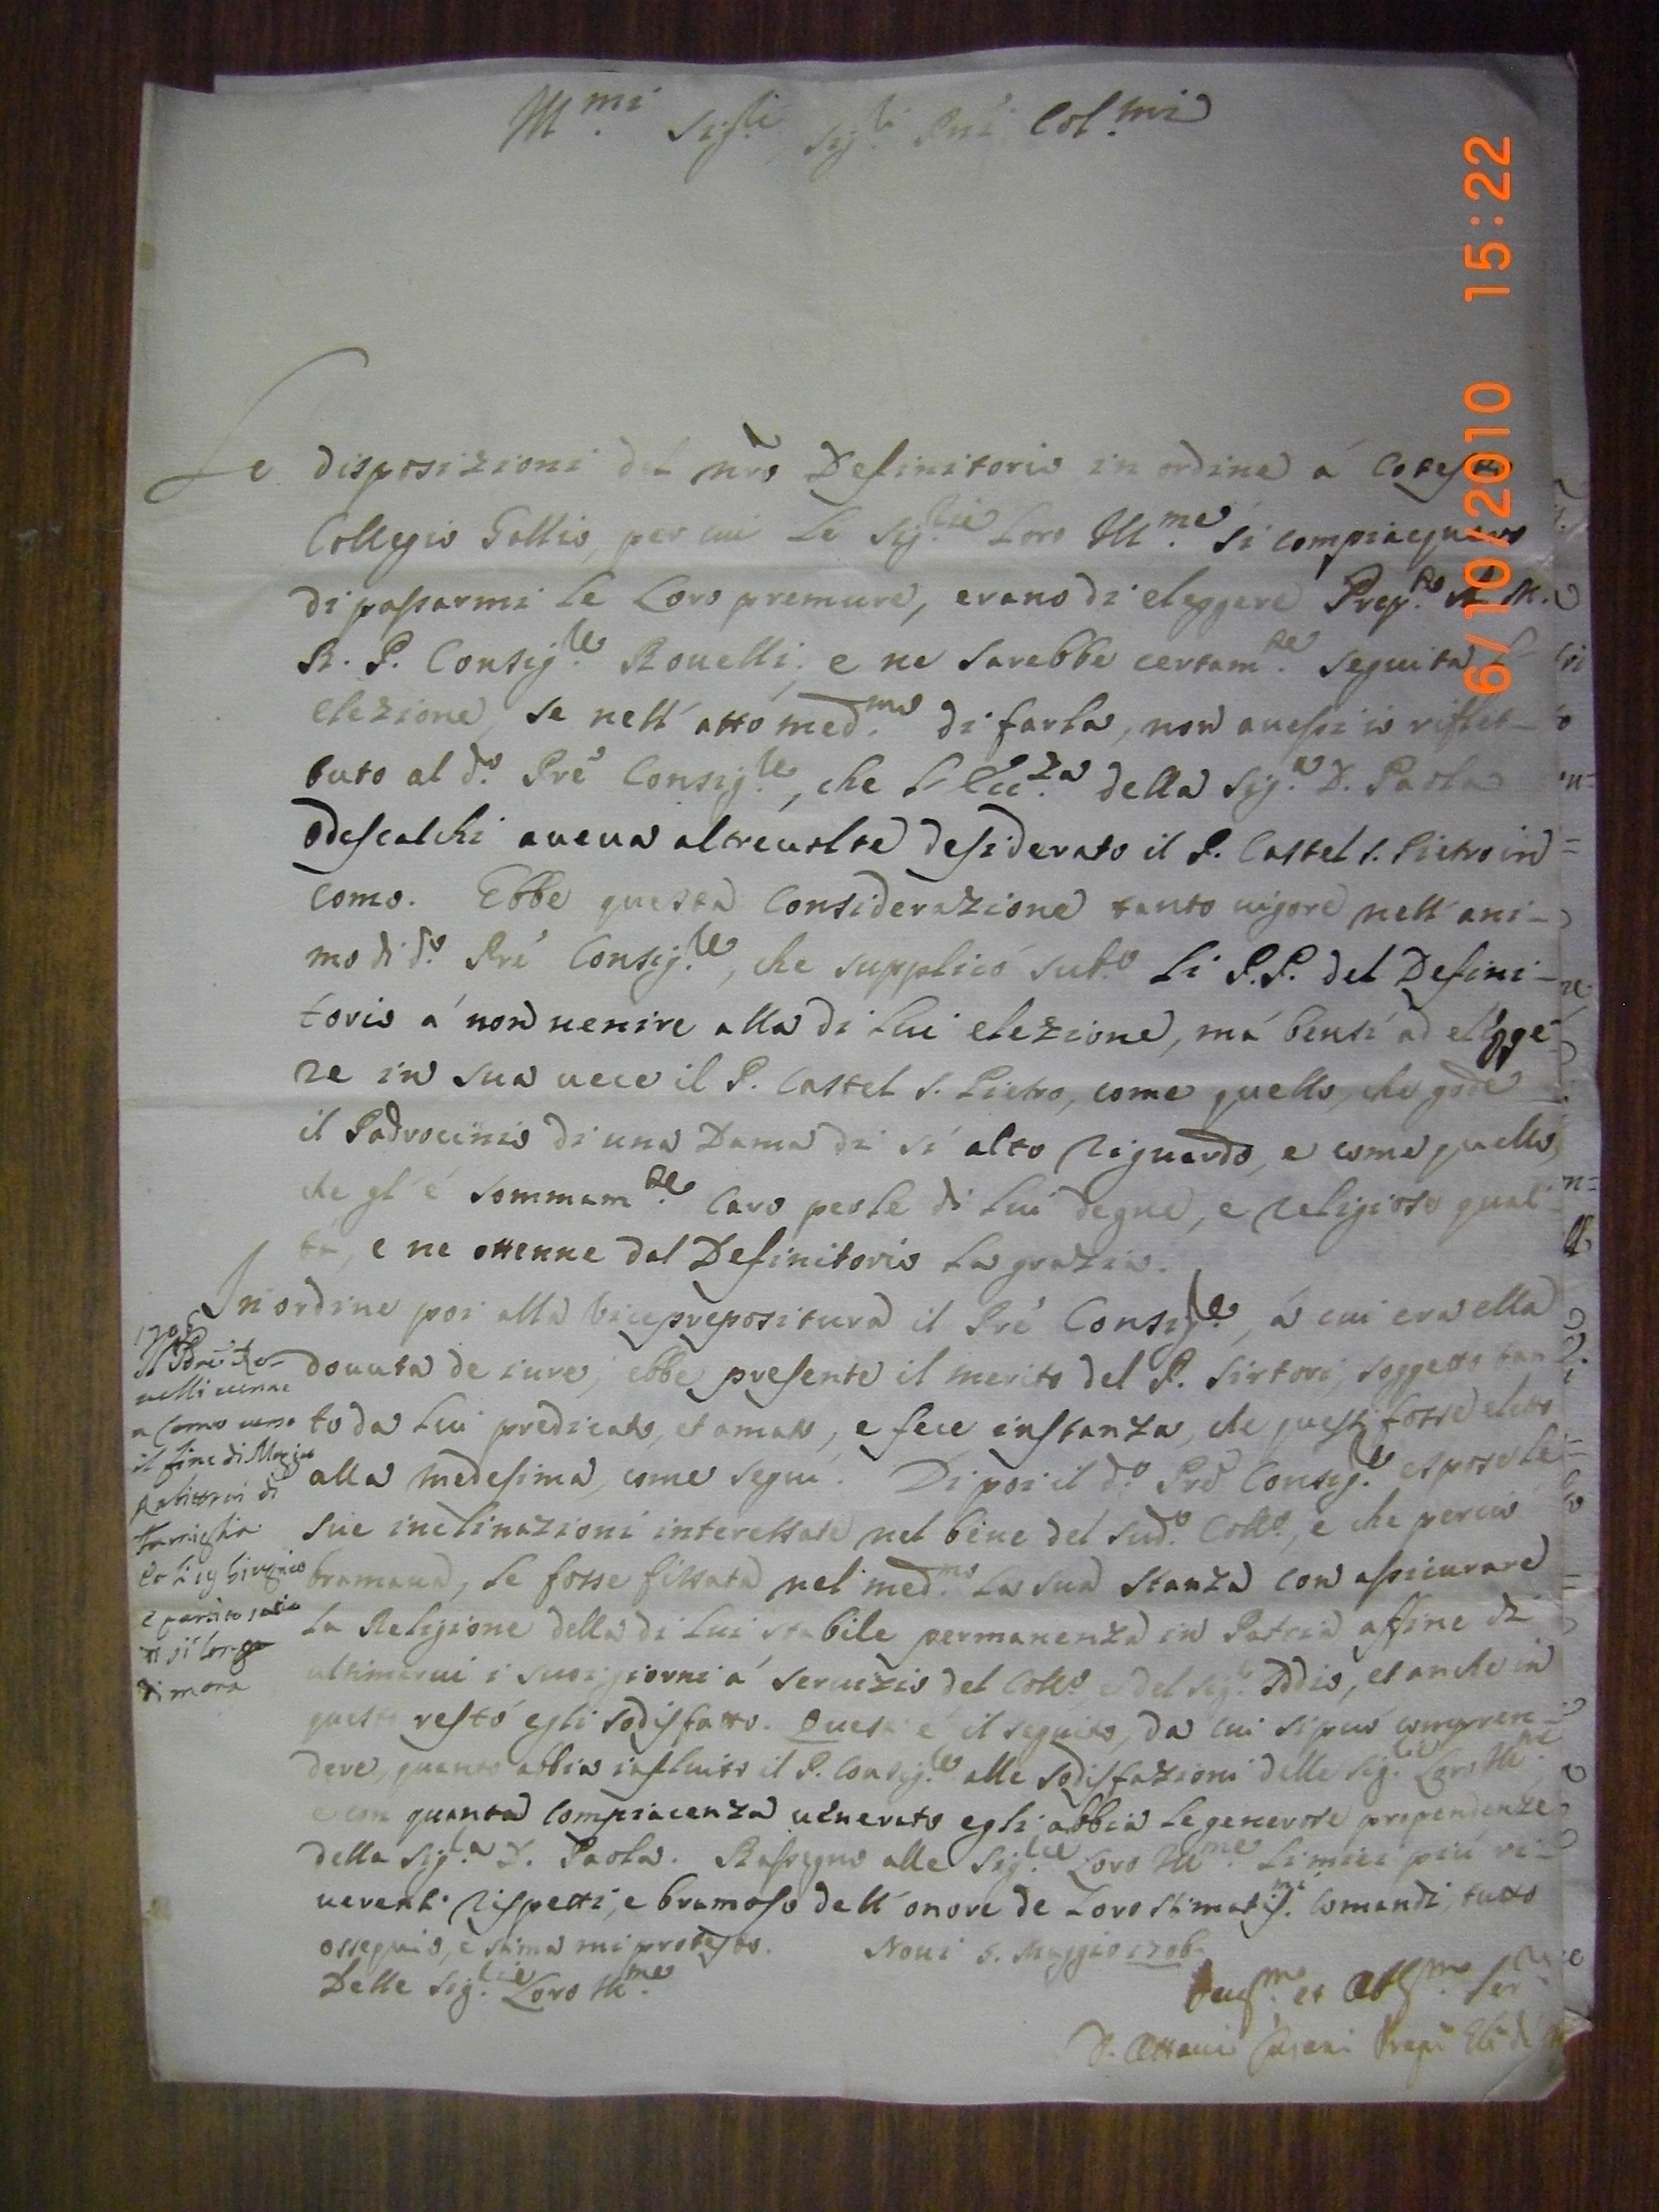 Ill.mi Sig.ri Sig.ri Pñi Col.mi
Le disposizioni del nr̃o Definitorio in ordine á Cotesto
Collegio Gallio, per cui Le Sig.rie Loro Ill.me si compiacquero
di passarmi le Loro premure, erano di eleggere Prep.to il M.
R. P. Consig.le Rouelli, e ne sarebbe certam.te seguita L'
elezione, se nell'atto med.mo di farla, non auessi io riflet-
tuto al d.o Prẽ Consig.le, che L'Ecc.za della Sig.a D. Paola
Odescalchi aueua altreuolte desiderato il P. Castel S. Pietro in
Como. Ebbe questa Considerazione tanto uigore nell'ani-
mo di d.o Prẽ Consig.le, che supplicó sub.o li P.P. del Defini-
torio á non uenire alla di Lui elezione, má bensí ad elegge-
re in sua uece il P. Castel S. Pietro, come quello, che gode
il Padrocinio di una Dama di sí alto riguardo, e come quello,
che gl'é sommam.te Caro per le di Lui degne, e religiose quali-
tá, e ne ottenne dal Definitorio la grazia.
In ordine poi alla Viceprepositura il Prẽ Consig.le, á cui era ella
douuta de iure, ebbe presente il merito del P. Sirtori, soggetto tan-
to da Lui predicato, et amato, e fece instanza, che questi fosse eletto
alla medesima, come seguí. Di poi il d.o Prẽ Consig.le espose le
sue inclinazioni interessate nel bene del sud.o Coll.o, e che perció
bramaua, le fosse fissata nel med.mo la sua stanza con assicurare
la Religione della di Lui stabile permanenza in Patria affine di
ultimarui i suoi giorni á seruizio del Coll.o, e del Sig.r Iddio, et anche in
questo restó egli sodisfatto. Questo é il seguito, da cui si puó compren-
dere, quanto abbia influito il P. Consig.le alle sodisfazioni delle Sig.rie Loro Ill.me
e con quanta Compiacenza uenerato egli abbia le generose propendenze
della Sig.ra D. Paola. Rassegno alle Sig.rie Loro Ill.me li miei piú ri-
uerenti rispetti, e bramoso dell'onore de Loro stimatis.mi Comandi, tutto
ossequio, e stima mi protesto. Noui 5. Maggio 1706.
Delle Sig.rie Loro Ill.me
Deuo.mo et Obl.mo Ser.re
D. Ottauio
1706
Il Prẽ Ro-
uelli uenne
a Como uerso
il fine di Maggio
famiglia
li 19 Giugno
e partito
di sí longa
dimora
6/10/2010 15:22